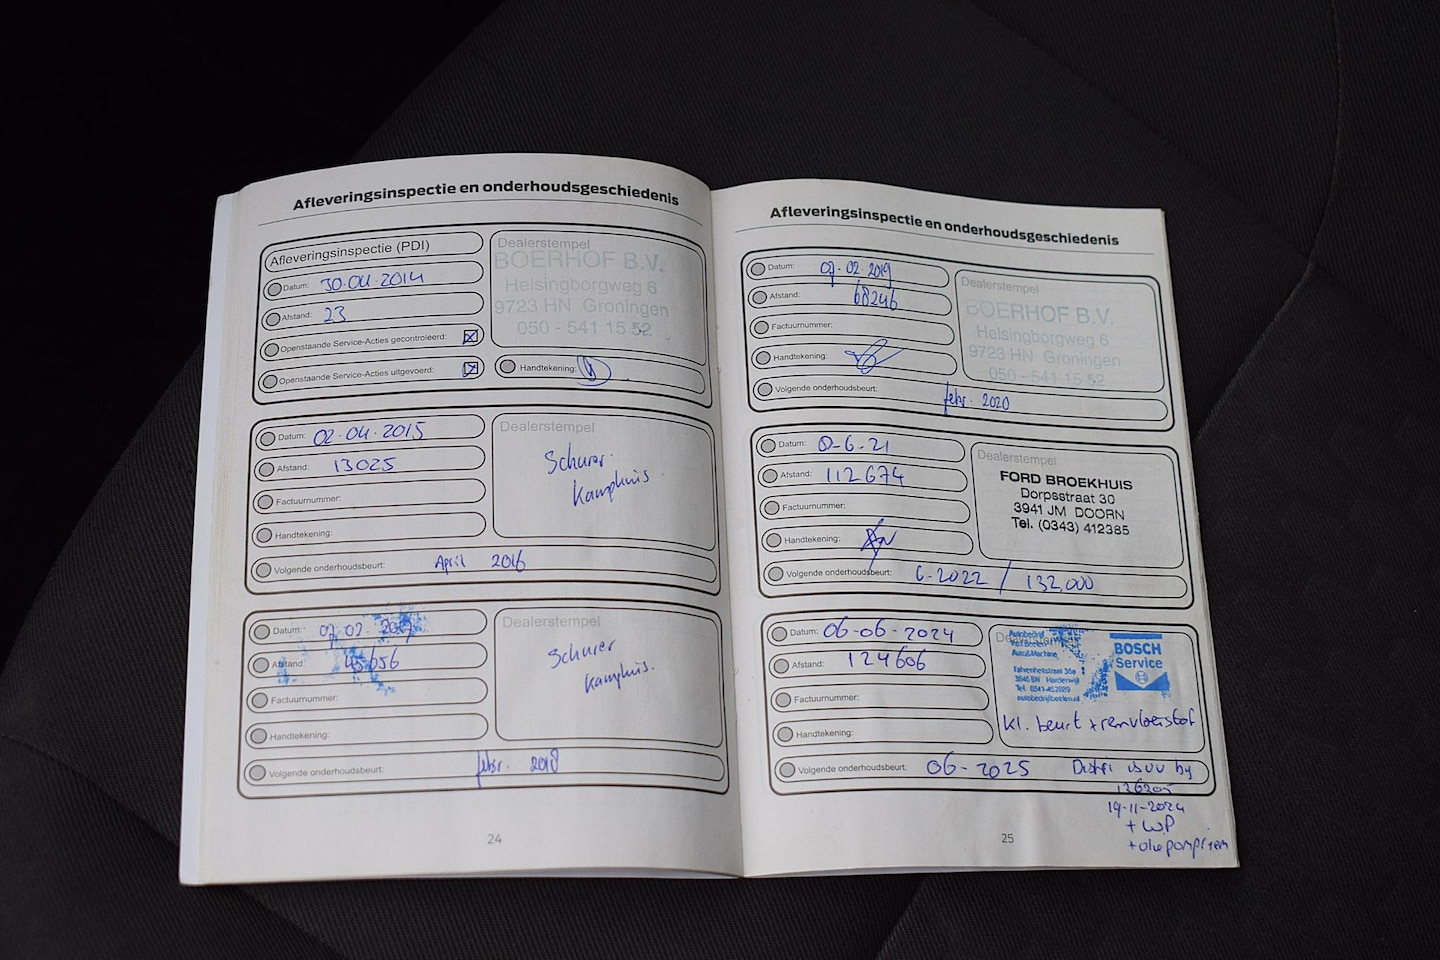 Afleveringsinspectie en onderhoudsgeschiedenis
Afleveringsinspectie (PDI)
Datum: 30.04.2014
Afstand: 23
Openstaande Service-Acties gecontroleerd:
Openstaande Service-Acties uitgevoerd:
Dealerstempel
BOERHOF B.V.
Helsingborgweg 6
9723 HN Groningen
050 - 541 15 52
Handtekening:
Datum: 02.04.2015
Afstand: 13025
Factuurnummer:
Handtekening:
Volgende onderhoudsbeurt: April 2016
Dealerstempel
Schurer
Kamphuis.
Datum: 07.02.2017
Afstand: 45656
Factuurnummer:
Handtekening:
Volgende onderhoudsbeurt: febr. 2018
Dealerstempel
Schurer
Kamphuis.
24
Afleveringsinspectie en onderhoudsgeschiedenis
Datum: 07.02.2019
Afstand: 68246
Factuurnummer:
Handtekening:
Volgende onderhoudsbeurt: febr. 2020
Dealerstempel
BOERHOF B.V.
Helsingborgweg 6
9723 HN Groningen
050 - 541 15 52
Datum: -6-21
Afstand: 112674
Factuurnummer:
Handtekening:
Volgende onderhoudsbeurt: 6-2022 / 132.000
Dealerstempel
FORD BROEKHUIS
Dorpsstraat 30
3941 JM DOORN
Tel. (0343) 412385
Datum: 06-06-2024
Afstand: 124606
Factuurnummer:
Handtekening:
Volgende onderhoudsbeurt: 06-2025
Dealerstempel
Autobedrijf
Auto&Machine
Fahrenheitstraat 36a
3846 BN Harderwijk
Tel. 0341-452889
BOSCH
Service
kl. beurt + remvloeistof
Distri is vv by
126205
19-11-2024
+ WP
+ oliepompriem
25